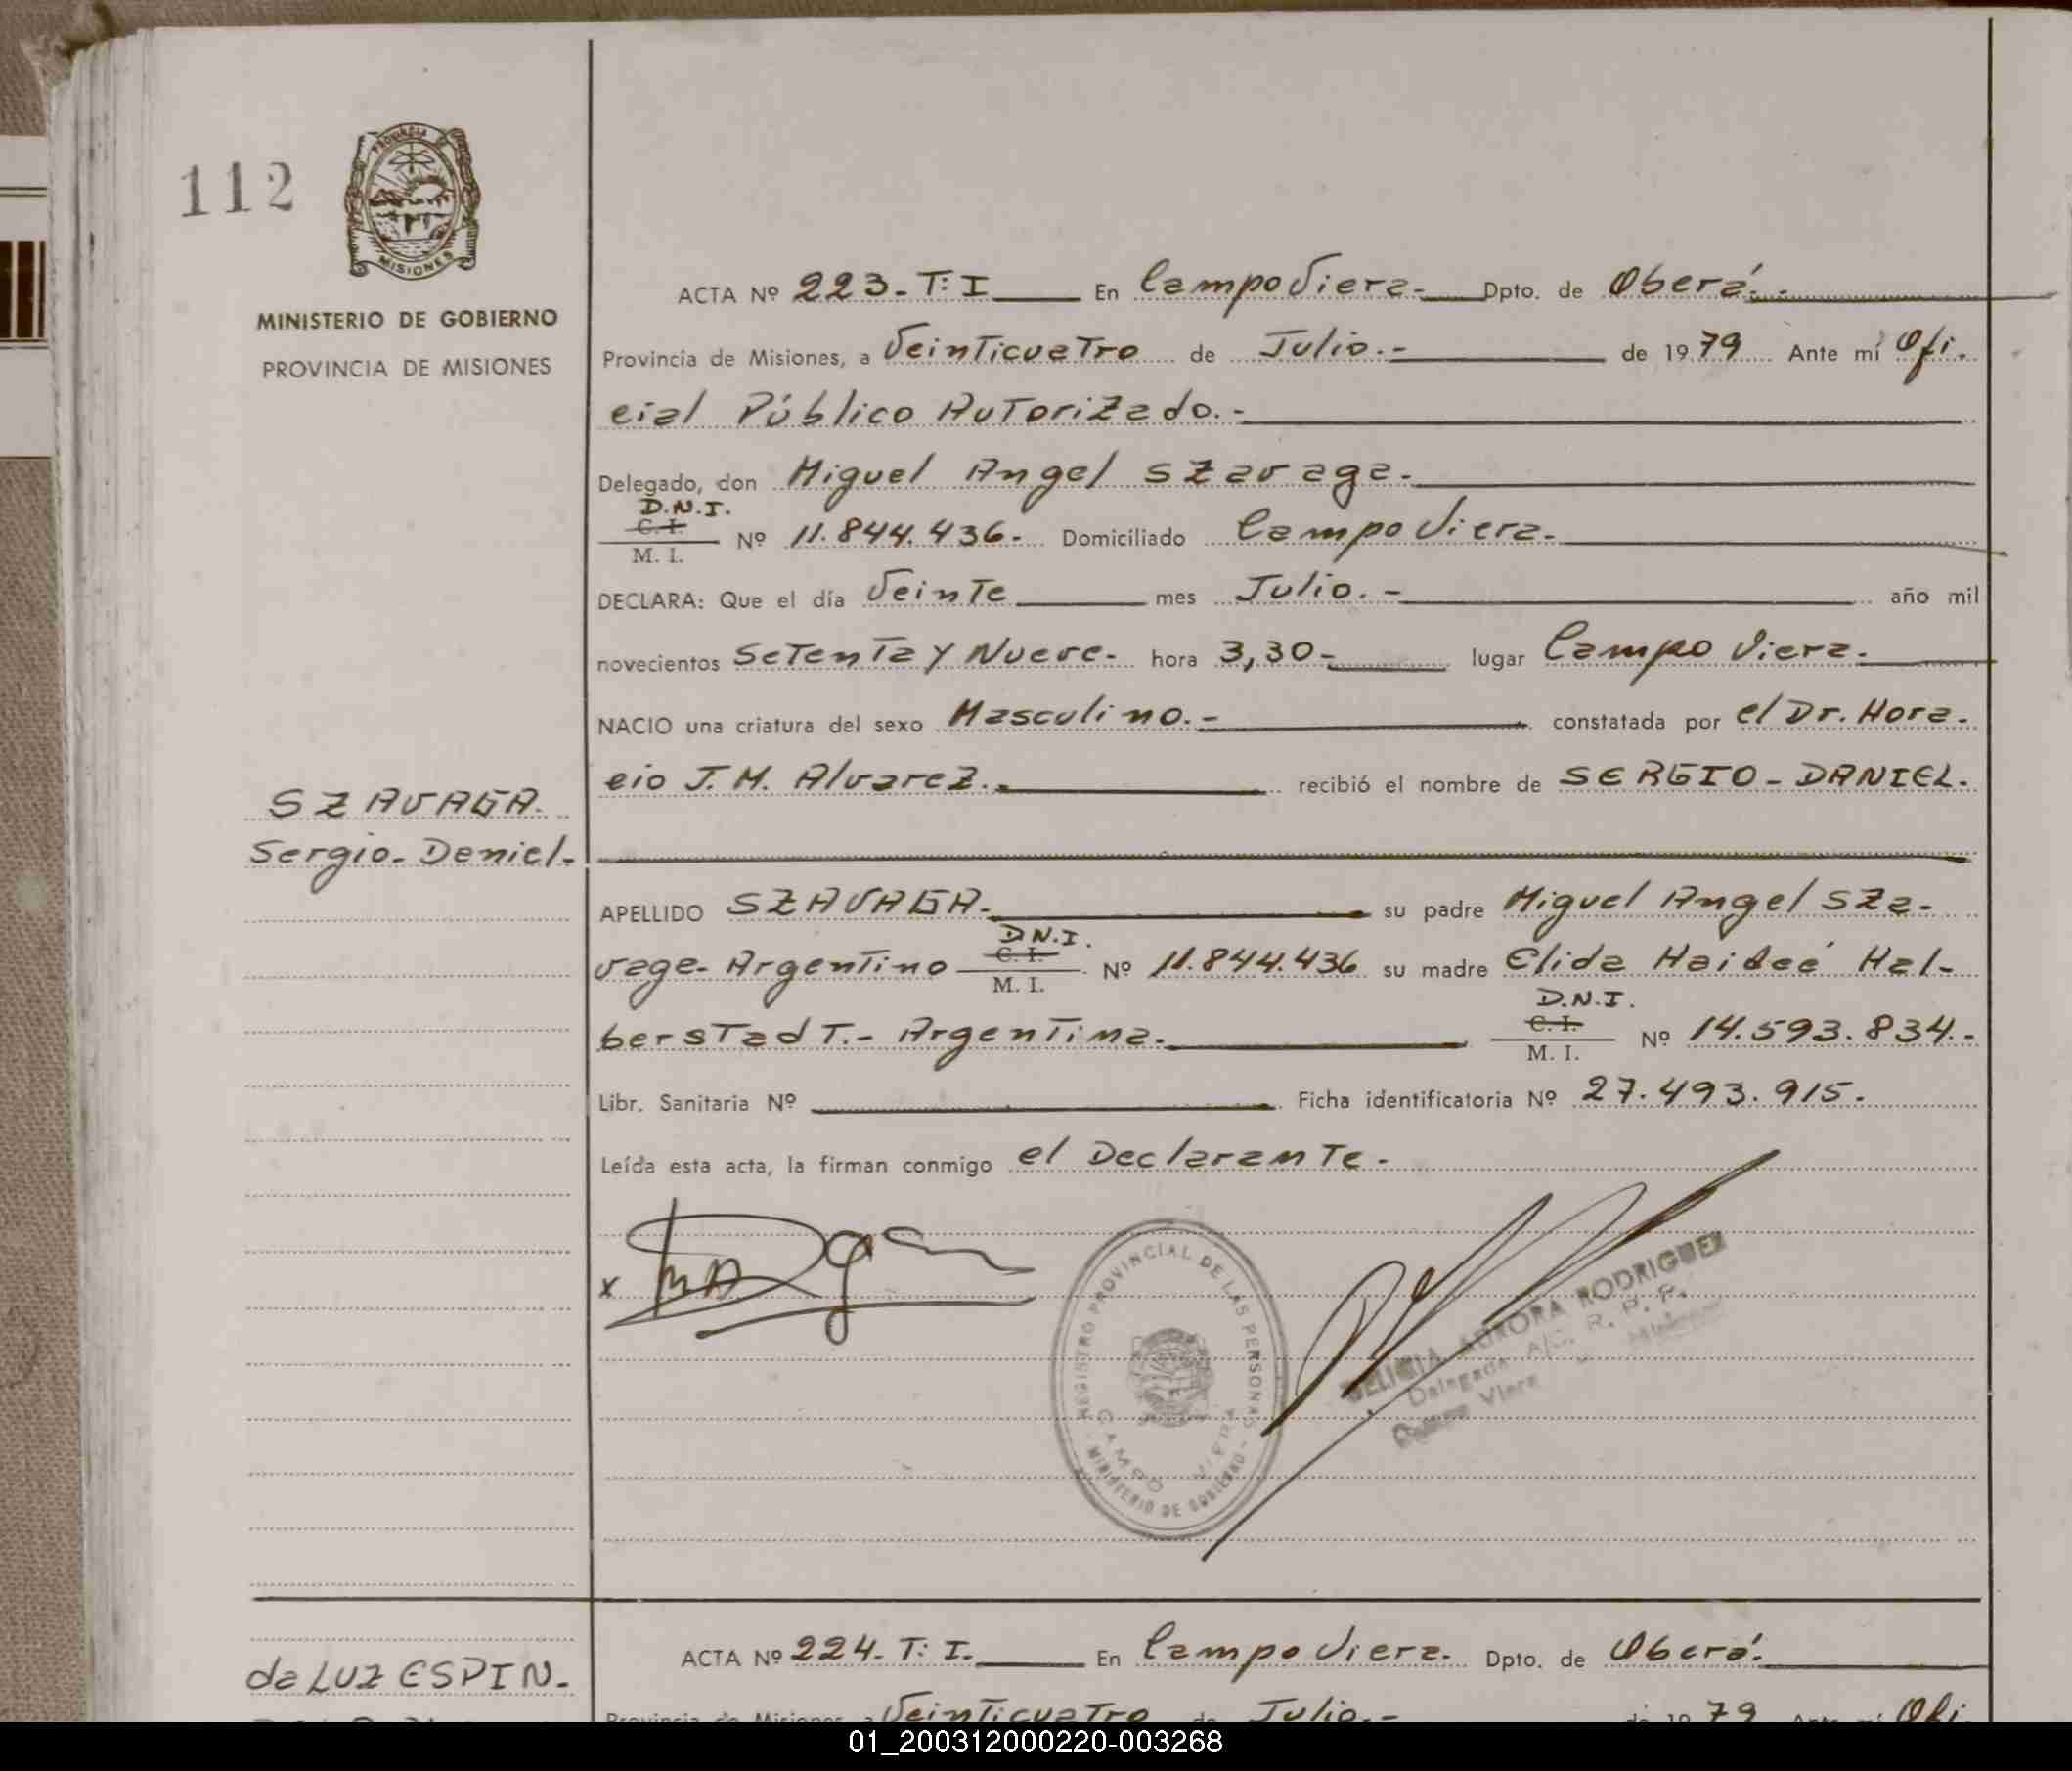 112
PROVINCIA DE
MISIONES
MINISTERIO DE GOBIERNO
PROVINCIA DE MISIONES
ACTA Nº 223-T: I En Campo Viera.- Dpto. de Oberá.-
Provincia de Misiones, a Veinticuatro de Julio.- de 1979 Ante mí Ofi-
cial Público Autorizado.-
Delegado, don Miguel Angel Szavaga.-
D.N.I.
C. I.
M. I. Nº 11.844.436.- Domiciliado Campo Viera.-
DECLARA: Que el día Veinte mes Julio.- año mil
novecientos Setenta y Nueve.- hora 3,30- lugar Campo Viera.-
NACIO una criatura del sexo Masculino.- constatada por el Dr. Hora-
cio J. M. Alvarez.- recibió el nombre de SERGIO-DANIEL.-
SZAVAGA.
Sergio-Daniel.-
APELLIDO SZAVAGA.- su padre Miguel Angel Sza-
D.N.I.
vaga- Argentino C. I. Nº 11.844.436 su madre Elida Haideé Hal-
M. I.
D.N.I.
berstadt.- Argentina.- C. I. Nº 14.593.834.-
M. I.
Libr. Sanitaria Nº Ficha identificatoria Nº 27.493.915.
Leída esta acta, la firman conmigo el Declarante.-
x
REGISTRO PROVINCIAL DE LAS PERSONAS
CAMPO VIERA
- MINISTERIO DE GOBIERNO -
DELICIA AURORA RODRIGUEZ
Delegada A/C. R. P. P.
Campo Viera Misiones
ACTA Nº 224- T: I. En Campo Viera.- Dpto. de Oberá.-
da LUZ ESPIN.-
Provincia de Misiones, a Veinticuatro de Julio.- de 1979 Ante mí Ofi-
01_200312000220-003268